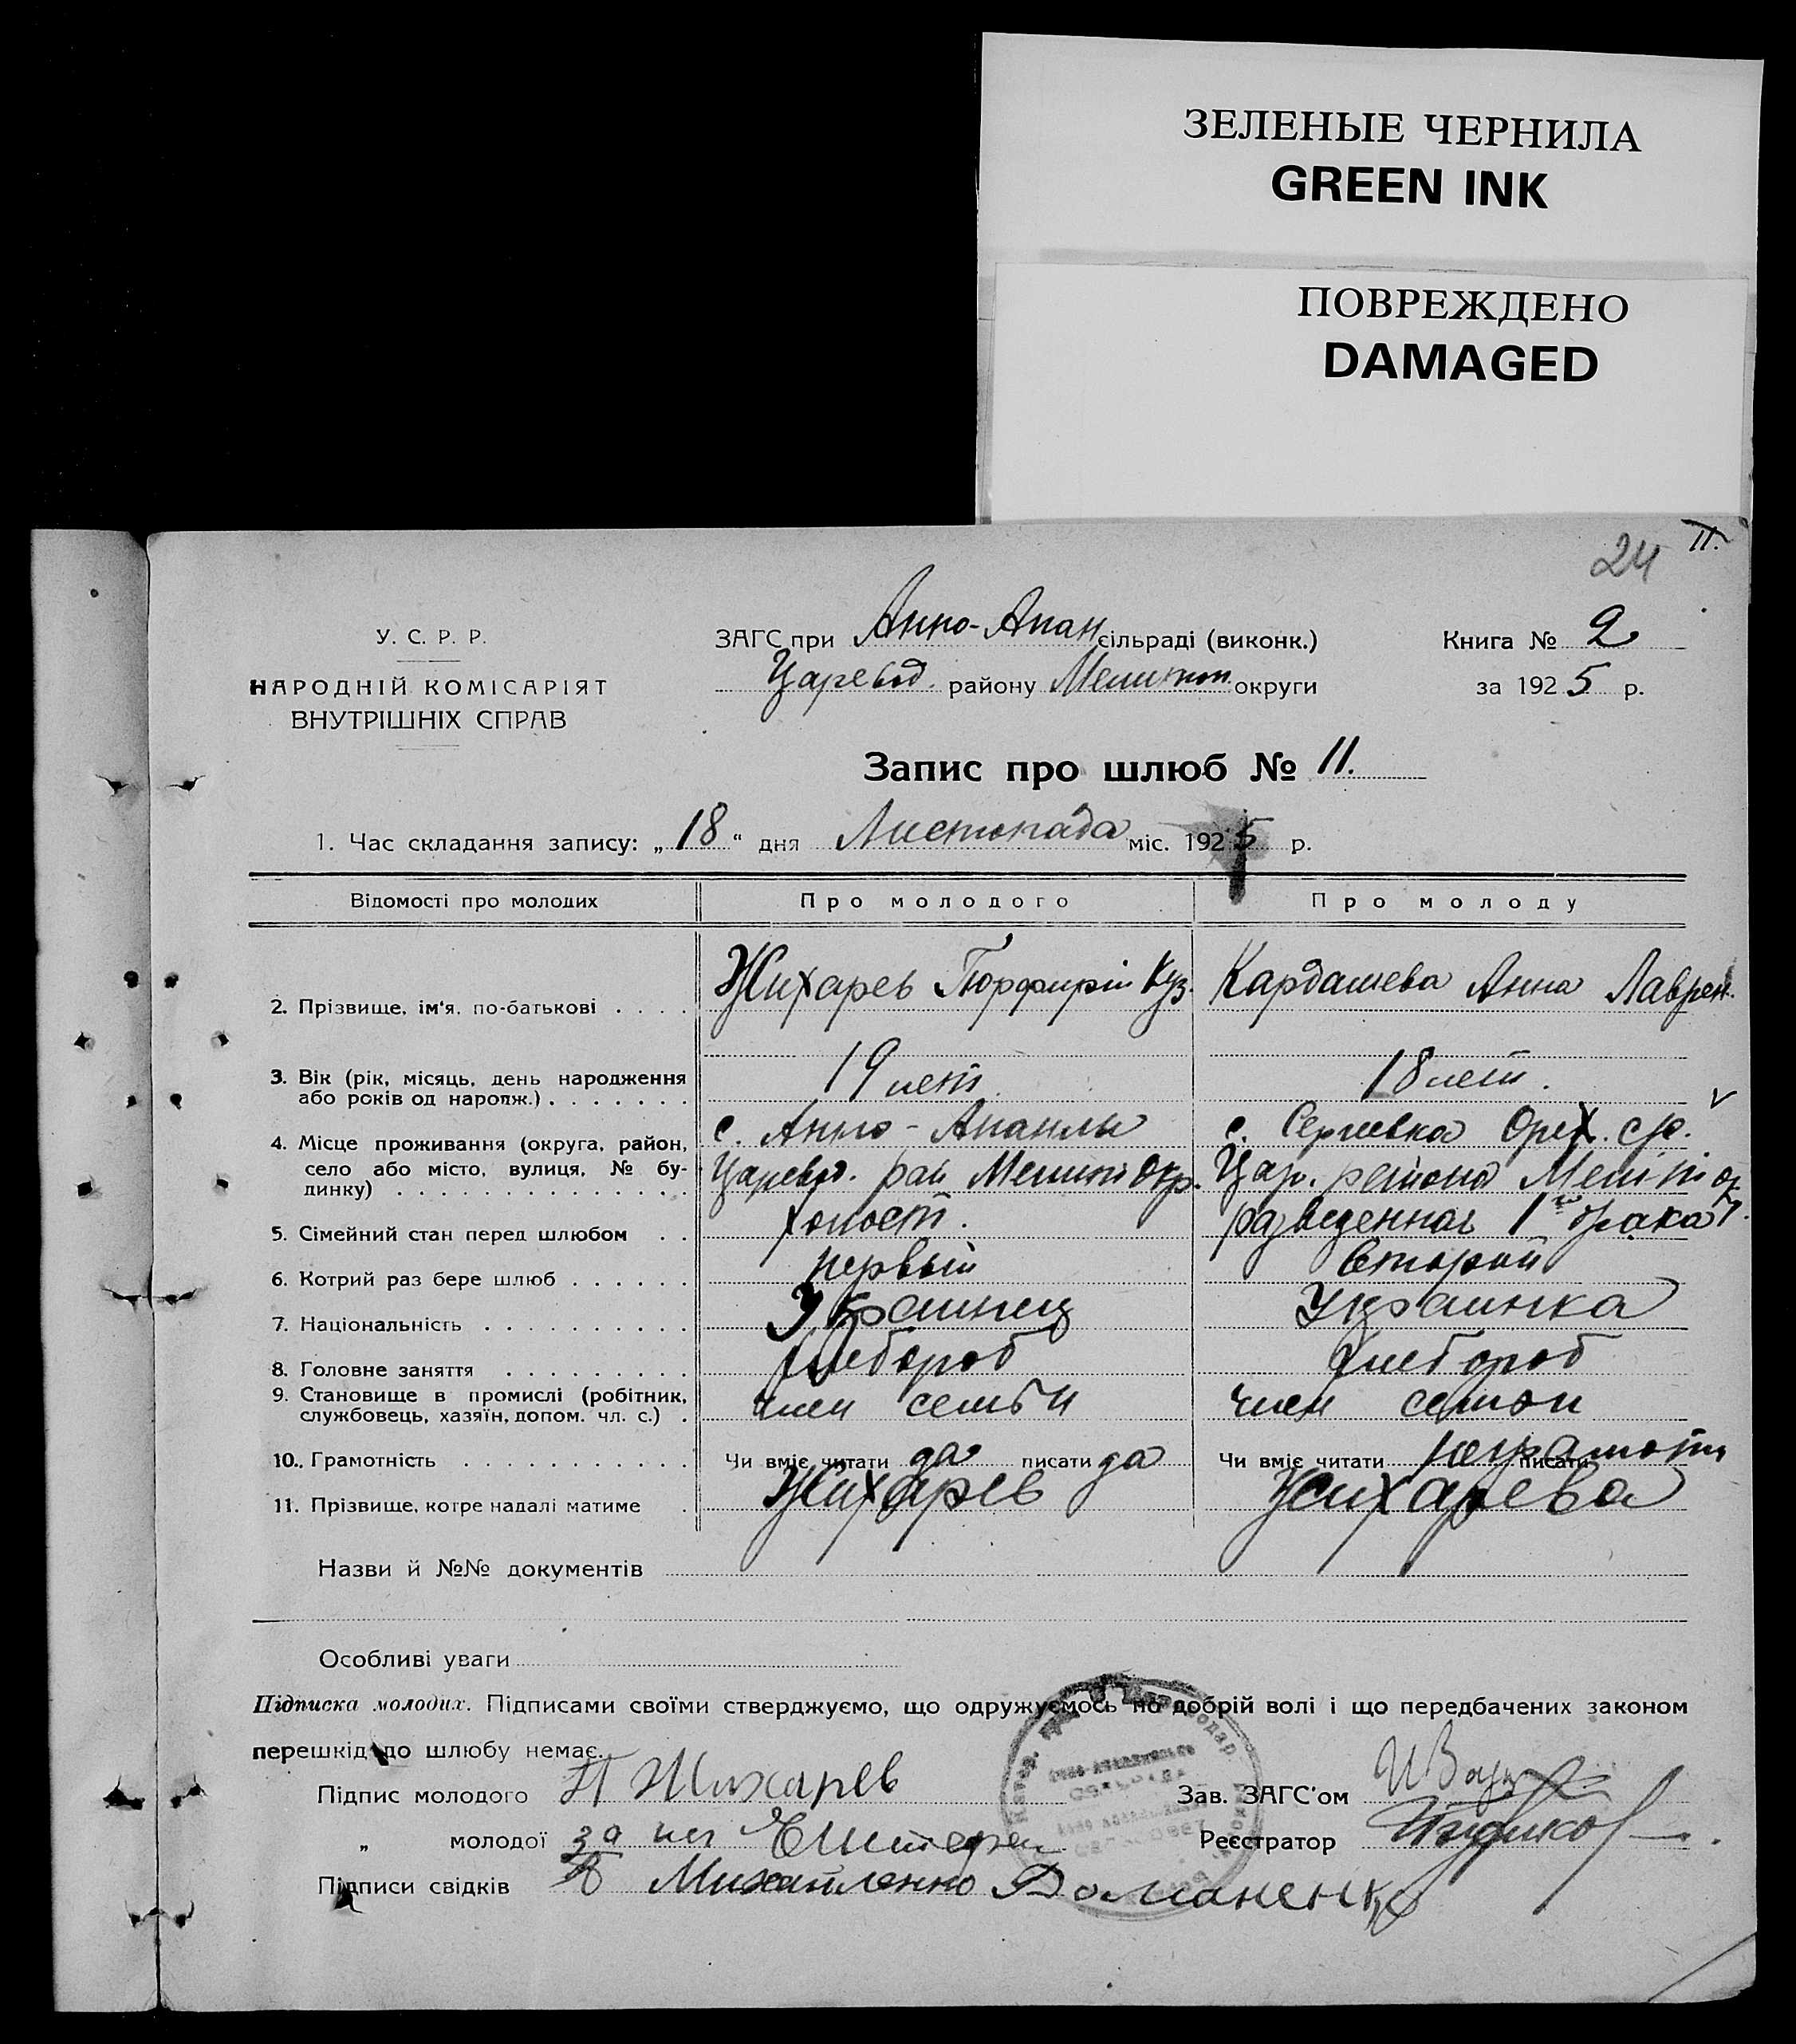 ЗЕЛЕНЫЕ ЧЕРНИЛА
GREEN INK
ПОВРЕЖДЕНО
DAMAGED
24 II.
У. С. Р. Р.
НАРОДНІЙ КОМІСАРІЯТ
ВНУТРІШНІХ СПРАВ
ЗАГС при Анно-Апан сільраді (виконк.)
Царевод. району Мелитоп. округи
Книга № 2
за 1925 р.
Запис про шлюб № 11.
1. Час складання запису: „18“ дня Листопада міс. 1925 р.
Відомості про молодих Про молодого Про молоду
2. Прізвище, ім'я, по-батькові Жихарев Порфирій Куз. Кардашева Анна Лаврен.
3. Вік (рік, місяць, день народження
або років од народж.) 19 лет 18 лет.
4. Місце проживання (округа, район, с. Анно-Апанлы с. Сергиевка Орех. с/с.
село або місто, вулиця, № бу- Царевод. рай Мелит Окр. Цар. района Мелит
динку)
5. Сімейний стан перед шлюбом холост. разведенная 1го брака
6. Котрий раз бере шлюб первый второй
7. Національність Украинец Украинка
8. Головне заняття хлебороб хлебороб
9. Становище в промислі (робітник, член семьи член семьи
службовець, хазяїн, допом. чл. с.)
10. Грамотність Чи вміє читати да писати да Чи вміє читати неграмотн писати
11. Прізвище, котре надалі матиме Жихарев Жихарева
Назви й №№ документів
Особливі уваги
Підписка молодих. Підписами своїми стверджуємо, що одружуємось по добрій волі і що передбачених законом
перешкід до шлюбу немає.
Підпис молодого П Жихарев Зав. ЗАГС'ом
„ молодої за не Реєстратор
Підписи свідків Михайленко Романенко